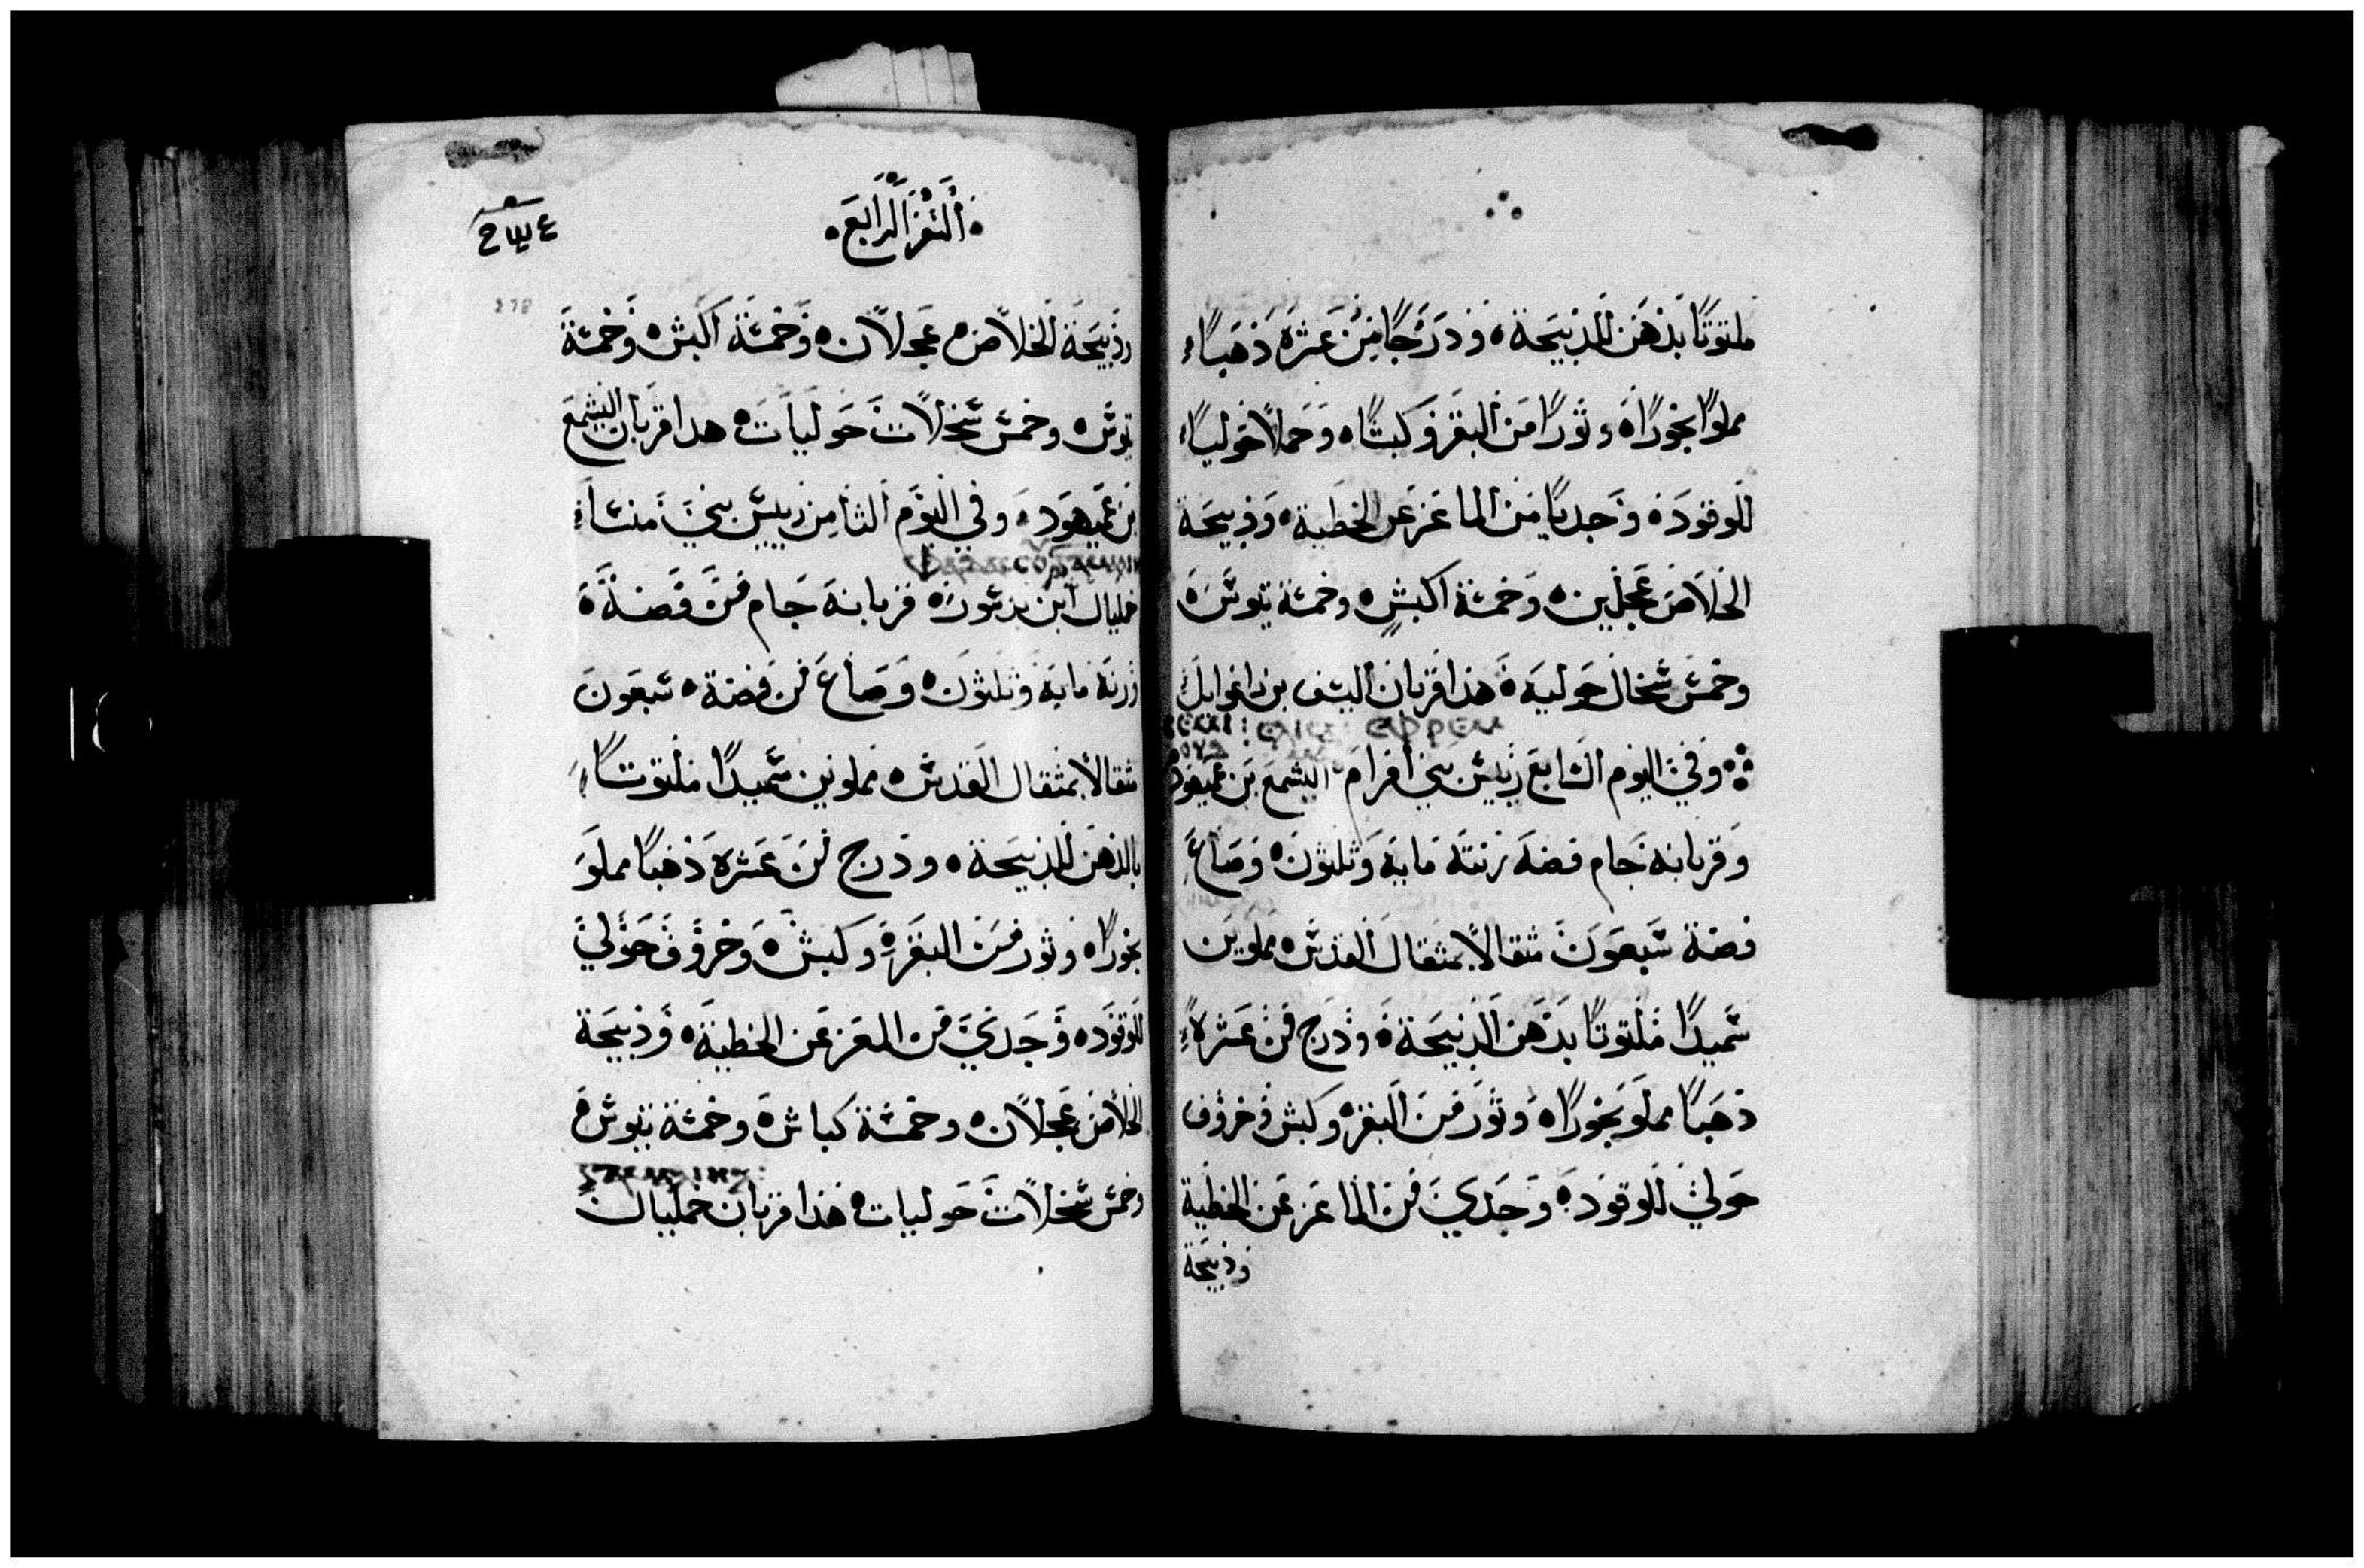 ملتوتًا بدهن للذبيحة ودرجًا من عشرة ذهبًا
مملوًا بخورًا وثورًا من البقر وكبشًا وحملًا حوليًا
للوقود وجديًا من الماعز عن الخطية وذبيحة
الخلاص عجلين وخمسة اكبش وخمسة تيوس
وخمس سخال حولية هذا قربان اليشف بن
وفي اليوم السابع رييس بني أفرام اليشمع بن عميهود
وقربانه جام فضة زنته ماية وثلثون وصاع
فضة سبعون مثقالًا بمثقال القدس مملوين
سميدًا ملتوتًا بدهن الذبيحة ودرج من عشرة
ذهبًا مملو بخورًا وثور من البقر وكبش وخروف
حولي للوقود وجدي من الماعز عن الخطية
وذبيحة
السفر الرابع
278
وذبيحة الخلاص عجلان وخمسة اكبش وخمسة
تيوس وخمس سخلات حوليات هدا قربان اليشمع
بن عميهود وفي اليوم الثامن رييس بني منسا
خمليال ابن قربانه جام من فضة
وزنه ماية وثلثون وصاع من فضة سبعون
مثقالًا بمثقال القدس مملوين سميدًا ملتوتًا
بالدهن للذبيحة ودرج من عشرة ذهبًا مملو
بخورًا وثور من البقر وكبش وخروف حولي
للوقود وجدي من المعز عن الخطية وذبيحة
الخلاص عجلان وخمسة كباش وخمسة تيوس
وخمس سخلات حوليات هذا قربان خمليال